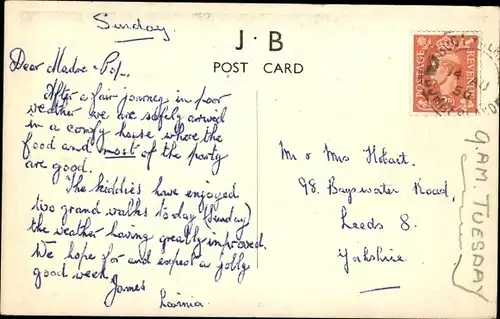 Sunday
J. B
POST CARD
Dear Madre & Pop,
After a fair journey in poor
weather we are safely arrived
in a comfy house where the
food and most of the party
are good.
The kiddies have enjoyed
two grand walks today (Sunday)
the weather having greatly improved.
We hope for and expect a jolly
good week
James
POSTAGE REVENUE
Mr & Mrs Hobart.
98. Bayswater Road,
Leeds 8.
Yorkshire
9 A.M. TUESDAY